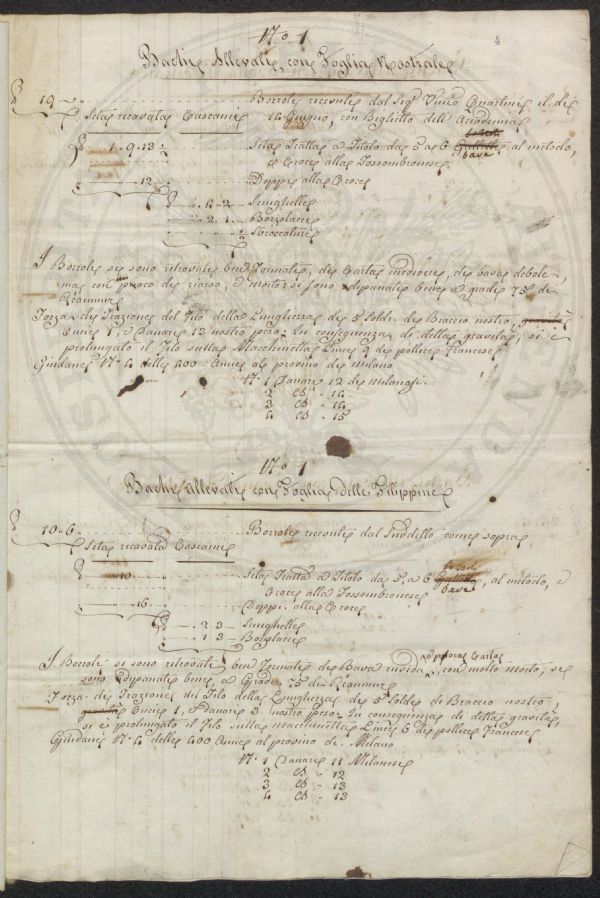 N.o 1
Bachi Allevati con Foglia Nostrale
19 Bozzoli ricevuti dal Sig.r Quartini il dì
Seta ricavata Cascami 14 Giugno, con Biglietto dell' Accademia
1..9..13 Seta Tratta a Titolo da 5 a 6 bave al metodo,
e Croce alla Fossombronese
12 Doppi alla Croce
4..2 Strughelle
2..1 Bozzolacci
½ Sbroccature
I Bozzoli si sono ritrovati ben formati, di Carta mediocre, di bava debole,
ma con poco di riarso, e morti si sono dipanati bene a gradi 75 di
Réaumur
Forza di Trazione del Filo della Lunghezza di 5 Soldi di Braccio nostro,
Oncie 1, e Danari 13 nostro peso. In conseguenza di detta gravità, si è
prolungato il Filo sulla Macchinetta Linee 9 di pollice Francese
Gindani N.o 4 delle 400 Anne al provino di Milano
N.o 1 Danari 12 di Milanesi.
2 Cd 14
3 Cd 14
4 Cd 15
N.o 1
Bachi Allevati con Foglia delle Filippine
10..6 Bozzoli ricevuti dal Suddetto come sopra
Seta ricavata Cascami
10 Seta Tratta a Titolo da 5 a 6 bave, al metodo, e
Croce alla Fossombronese
16 Doppi alla Croce
2..3 Strughelle
1..3 Bozzolacci
I Bozzoli si sono ritrovati ben formati di Bava ruvida, e poca Carta con molto morti, si
sono dipanati bene, a Gradi 75 di Réaumur
Forza di Trazione del Filo della Lunghezza di 5 Soldi di Braccio nostro
Oncie 1, e Danari 3 nostro peso. In conseguenza di detta gravità,
si è prolungato il Filo sulla Macchinetta Linee 6 di pollice Francese
Gindani N.o 4 delle 400 Anne al provino di Milano
N.o 1 Danari 11 Milanesi
2 Cd 12
3 Cd 13
4 Cd 13